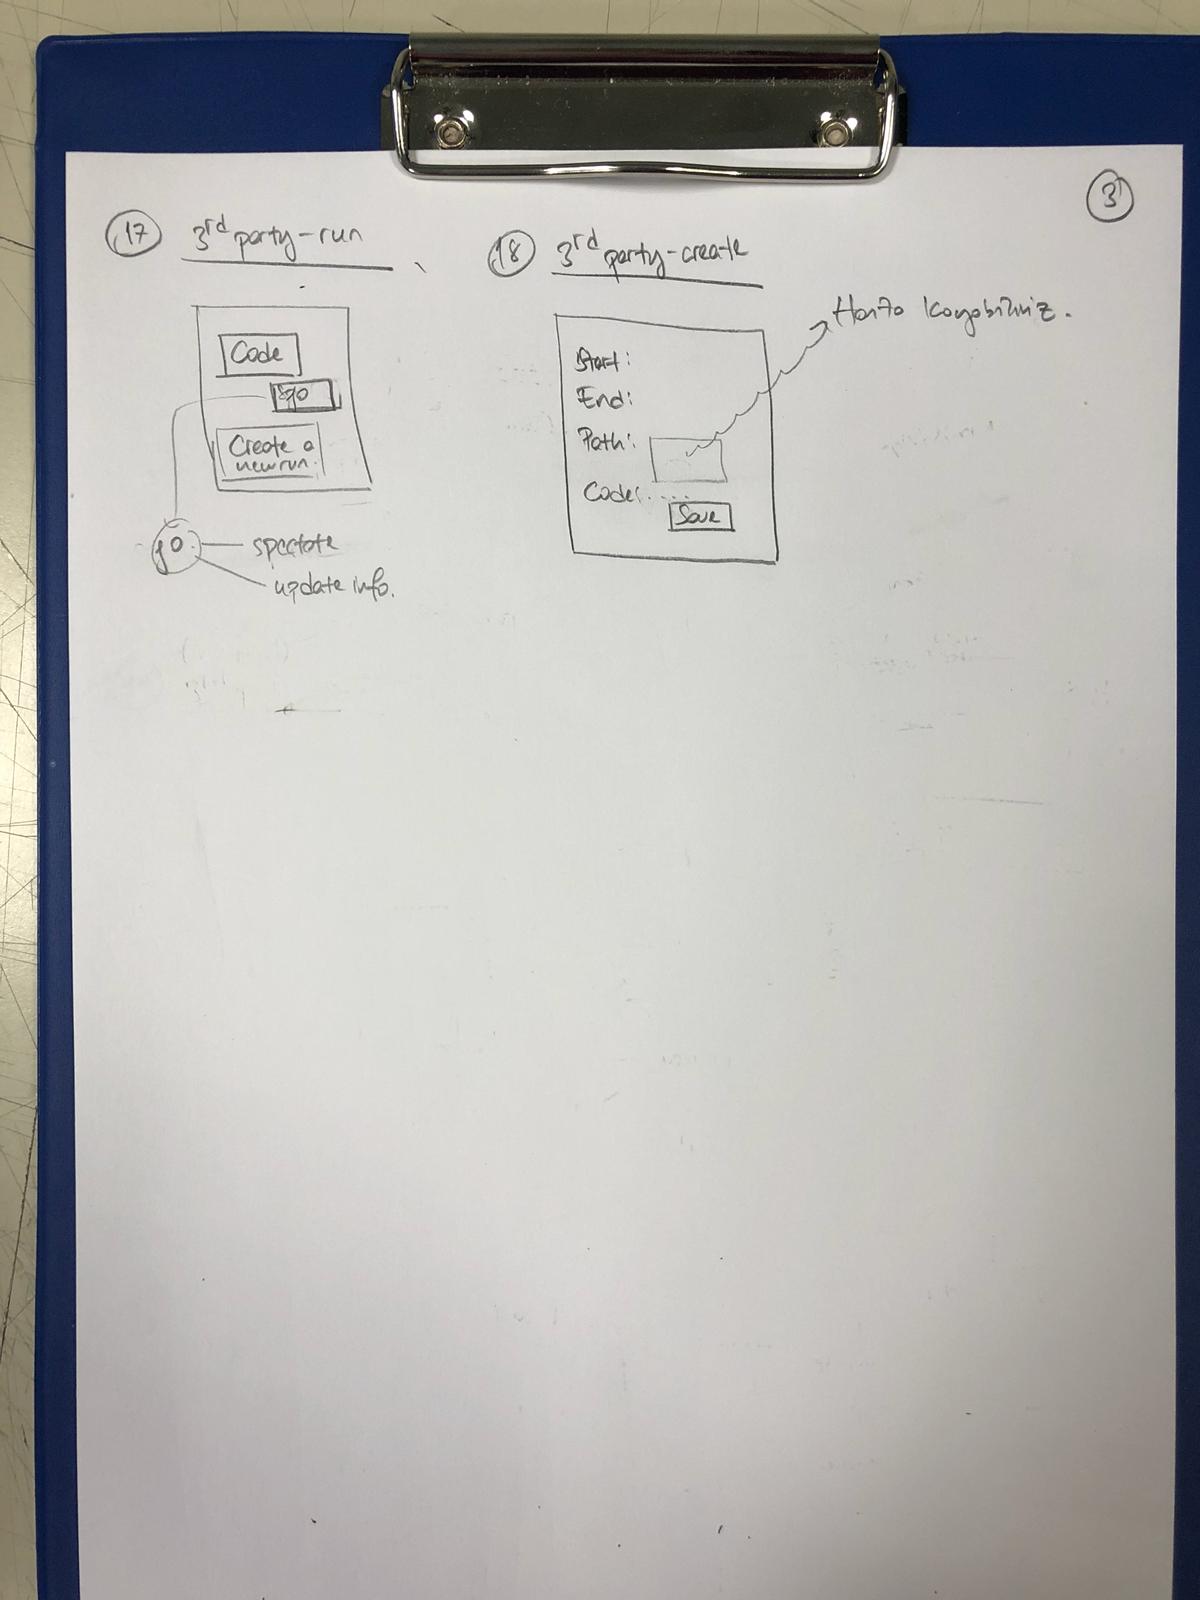 3
17 3rd party-run
Code
go
Create a
new run.
go
spectate
update info.
18 3rd party-create
Start:
End:
Path:
Code: ....
Save
Harita koyabiliriz.